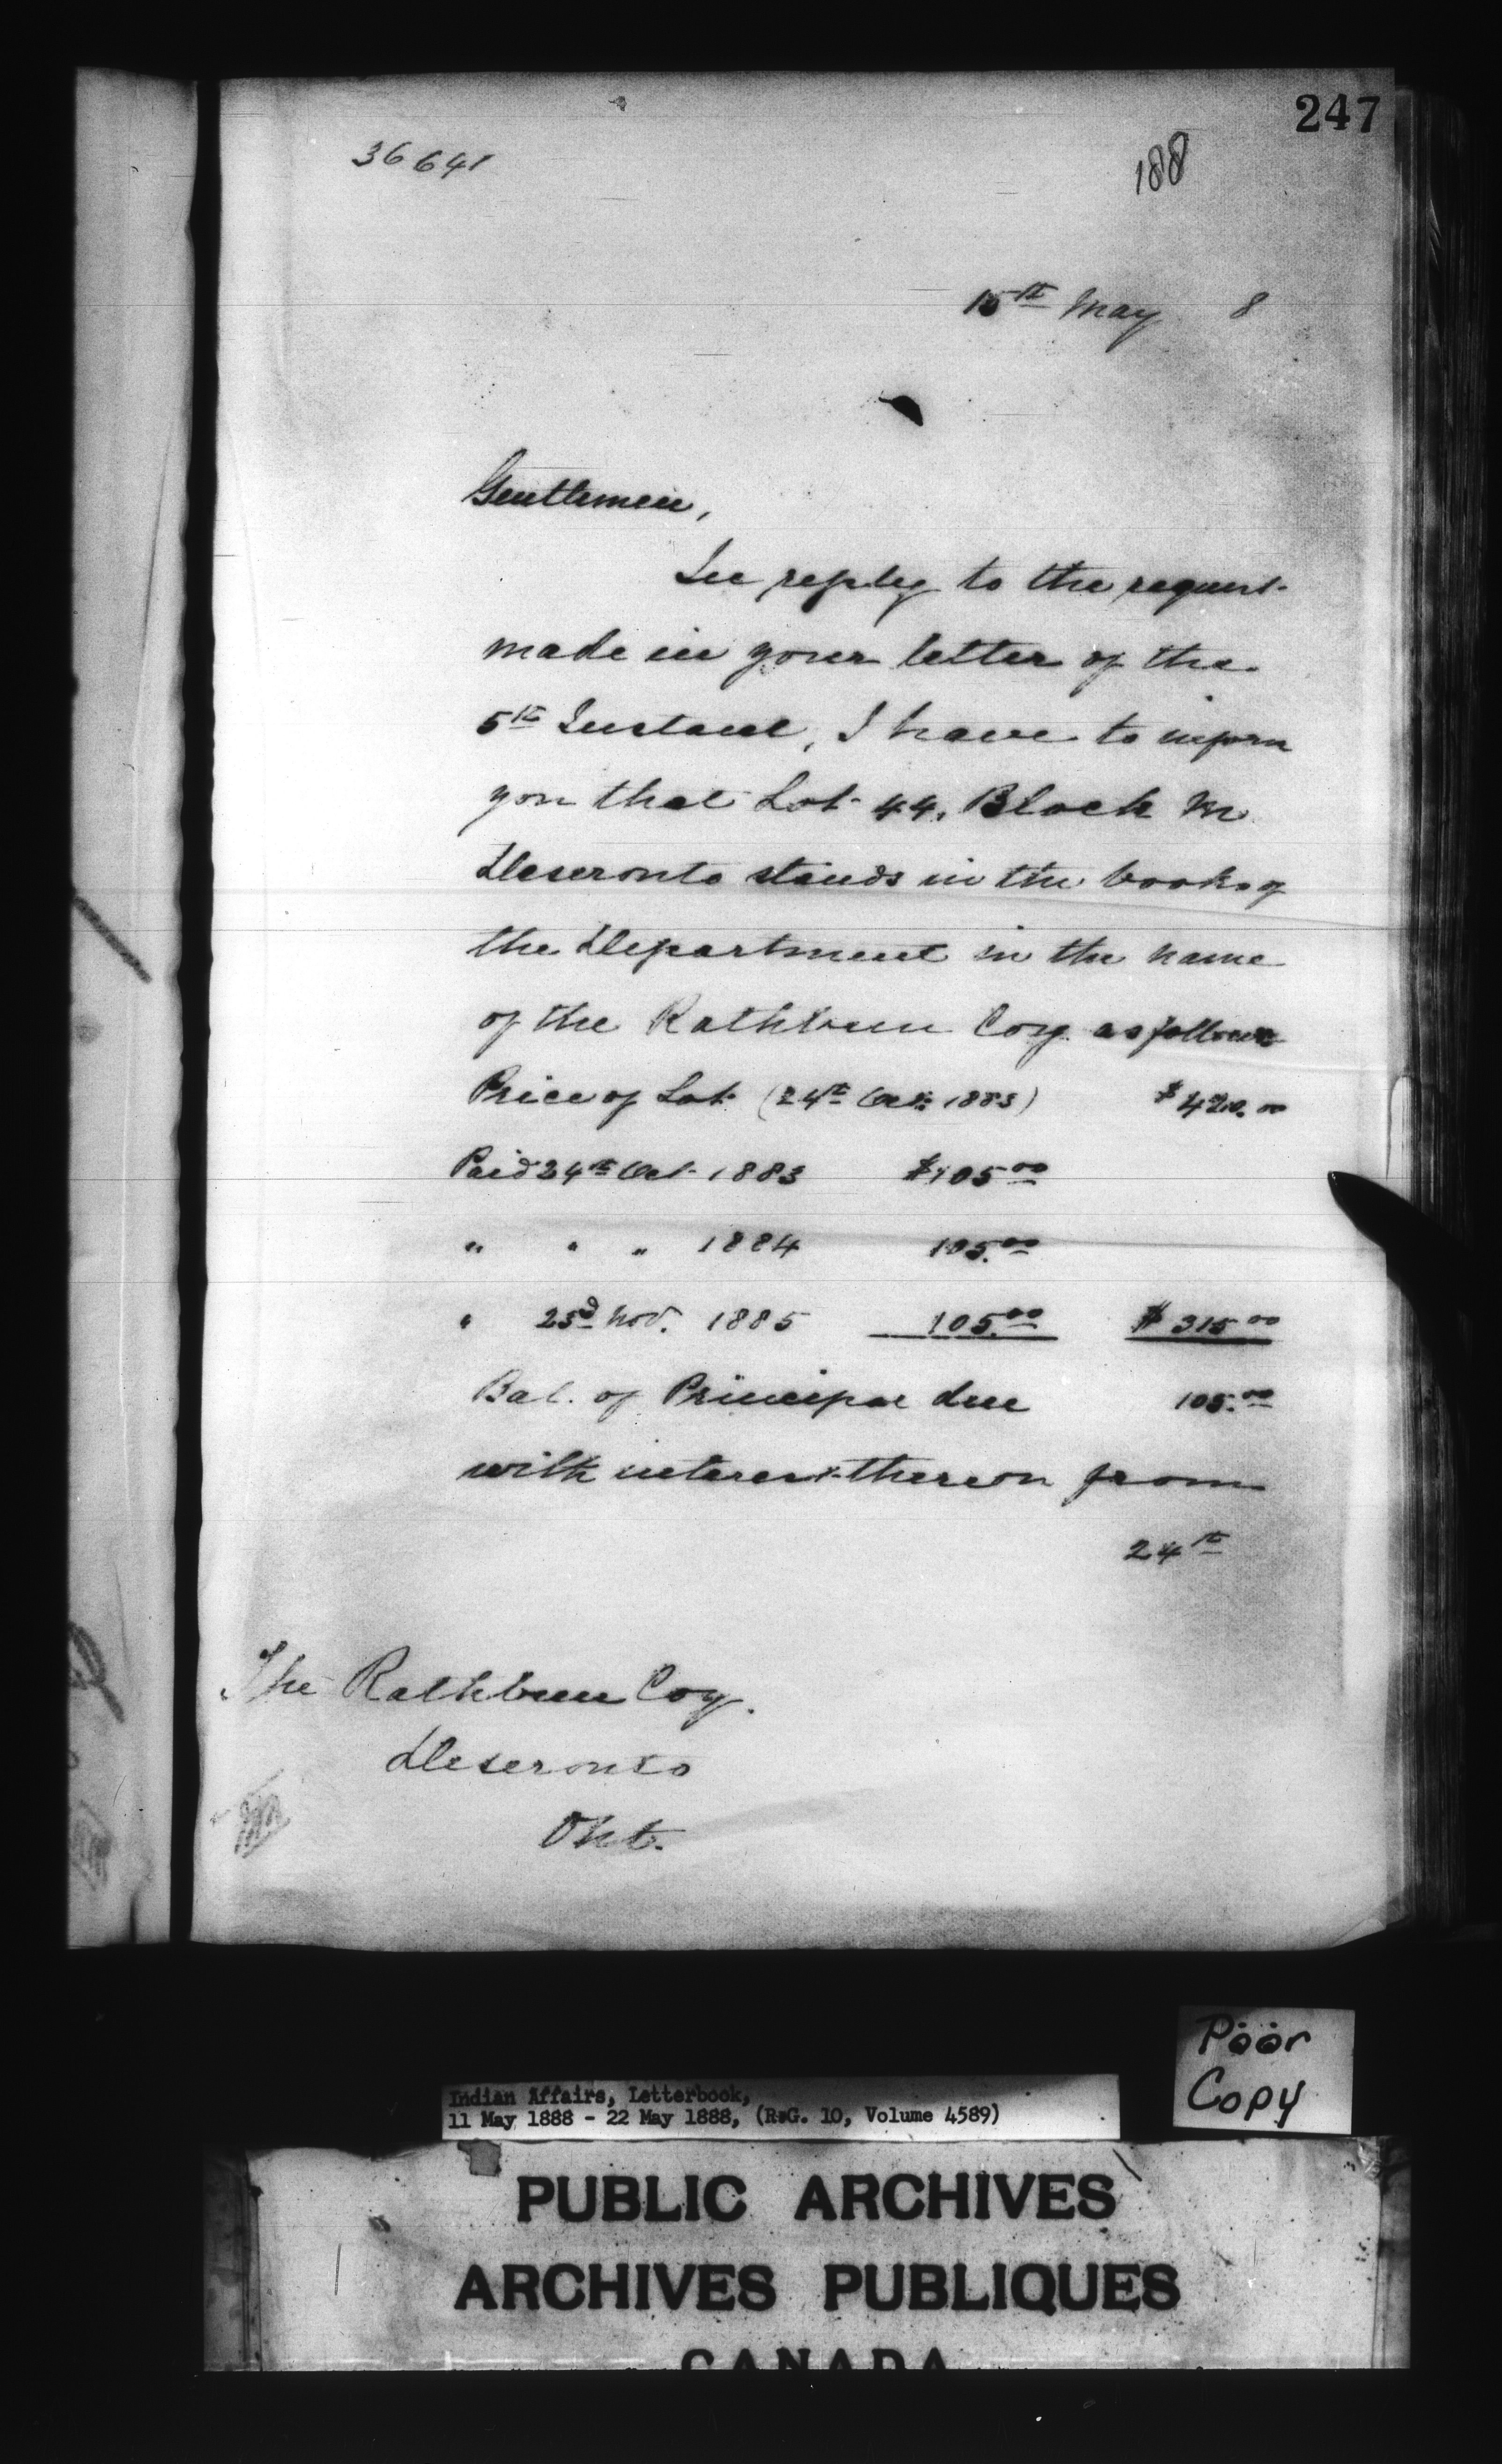 247
36641
188
15th May 8
Gentlemen,
In reply to the request
made in your letter of the
5th Instant, I have to inform
you that Lot 44, Block M
Deseronto stands in the books of
the Department in the name
of the Rathbun Coy. as follows
Price of Lot (24th Oct. 1883) $420.00
Paid 24th Oct. 1883 $105.00
" " " 1884 105.00
" 23d Nov. 1885 105.00 $315.00
Bal. of Principal due 105.00
with interest thereon from
24th
The Rathbun Coy.
Deseronto
Ont.
Poor
Copy
Indian Affairs, Letterbook,
11 May 1888 - 22 May 1888, (R.G. 10, Volume 4589)
PUBLIC ARCHIVES
ARCHIVES PUBLIQUES
CANADA